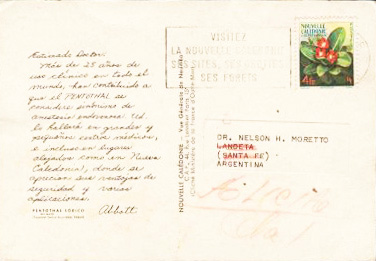 Estimado Doctor:
Más de 25 años de
uso clínico en todo el
mundo, han contribuido a
que el PENTOTHAL se
considere sinónimo de
anestesia endovenosa. Ud.
lo hallará en grandes y
pequeños centros médicos,
e incluso en lugares
alejados como en Nueva
Caledonia, donde se
aprecian sus ventajas de
seguridad y varias
aplicaciones.
Abbott
PENTOTHAL SÓDICO
NOUVELLE CALEDONIE - Vue Générale de Nouméa
VISITEZ
LA NOUVELLE CALEDONIE
SES SITES, SES
SES FORETS
NOUVELLE
CALEDONIE
4F
DR. NELSON H. MORETTO
LANDETA
(SANTA FE)
ARGENTINA